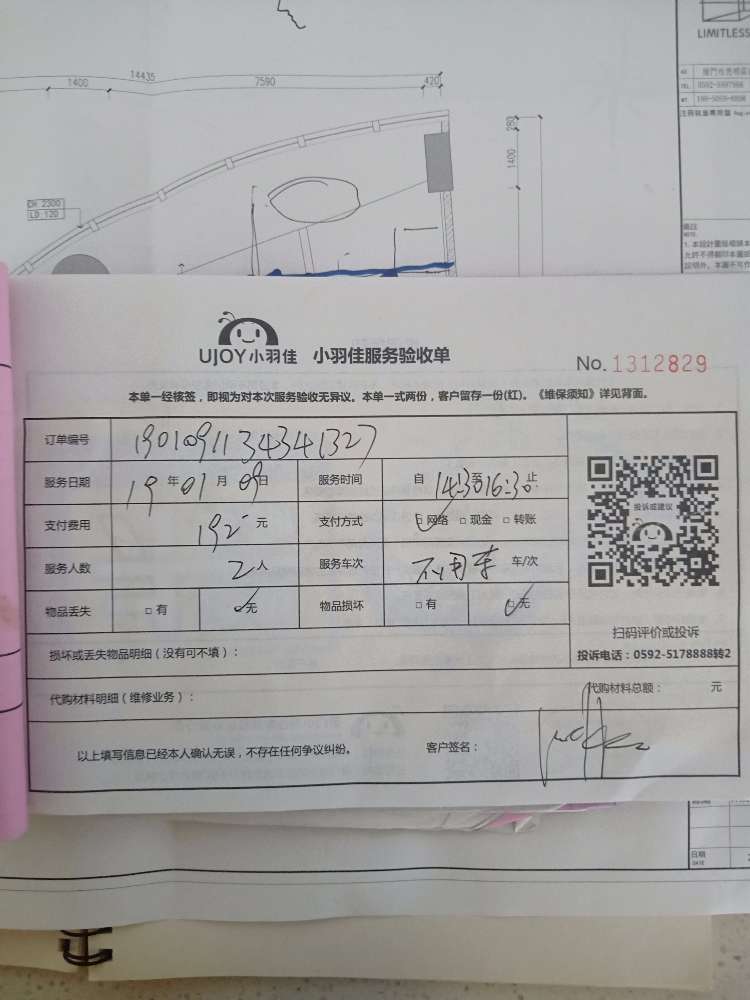 LIMITLESS
14435
1400
7590
420
280
1400
CH 2300
LD 120
TEL
NOTE:
UJOY小羽佳 小羽佳服务验收单
No. 1312829
本单一经核签，即视为对本次服务验收无异议。本单一式两份，客户留存一份(红)。《维保须知》详见背面。
订单编号 1901091134341327
服务日期 19年01月09日 服务时间 自14:30至16:30止
支付费用 192元 支付方式 ☑网络 □现金 □转账
服务人数 2人 服务车次 不用车 车/次
物品丢失 □有 ☑无 物品损坏 □有 ☑无
投诉或建议
扫码评价或投诉
投诉电话：0592-5178888转2
损坏或丢失物品明细（没有可不填）：
代购材料明细（维修业务）： 代购材料总额： 元
以上填写信息已经本人确认无误，不存在任何争议纠纷。 客户签名：
日期
DATE